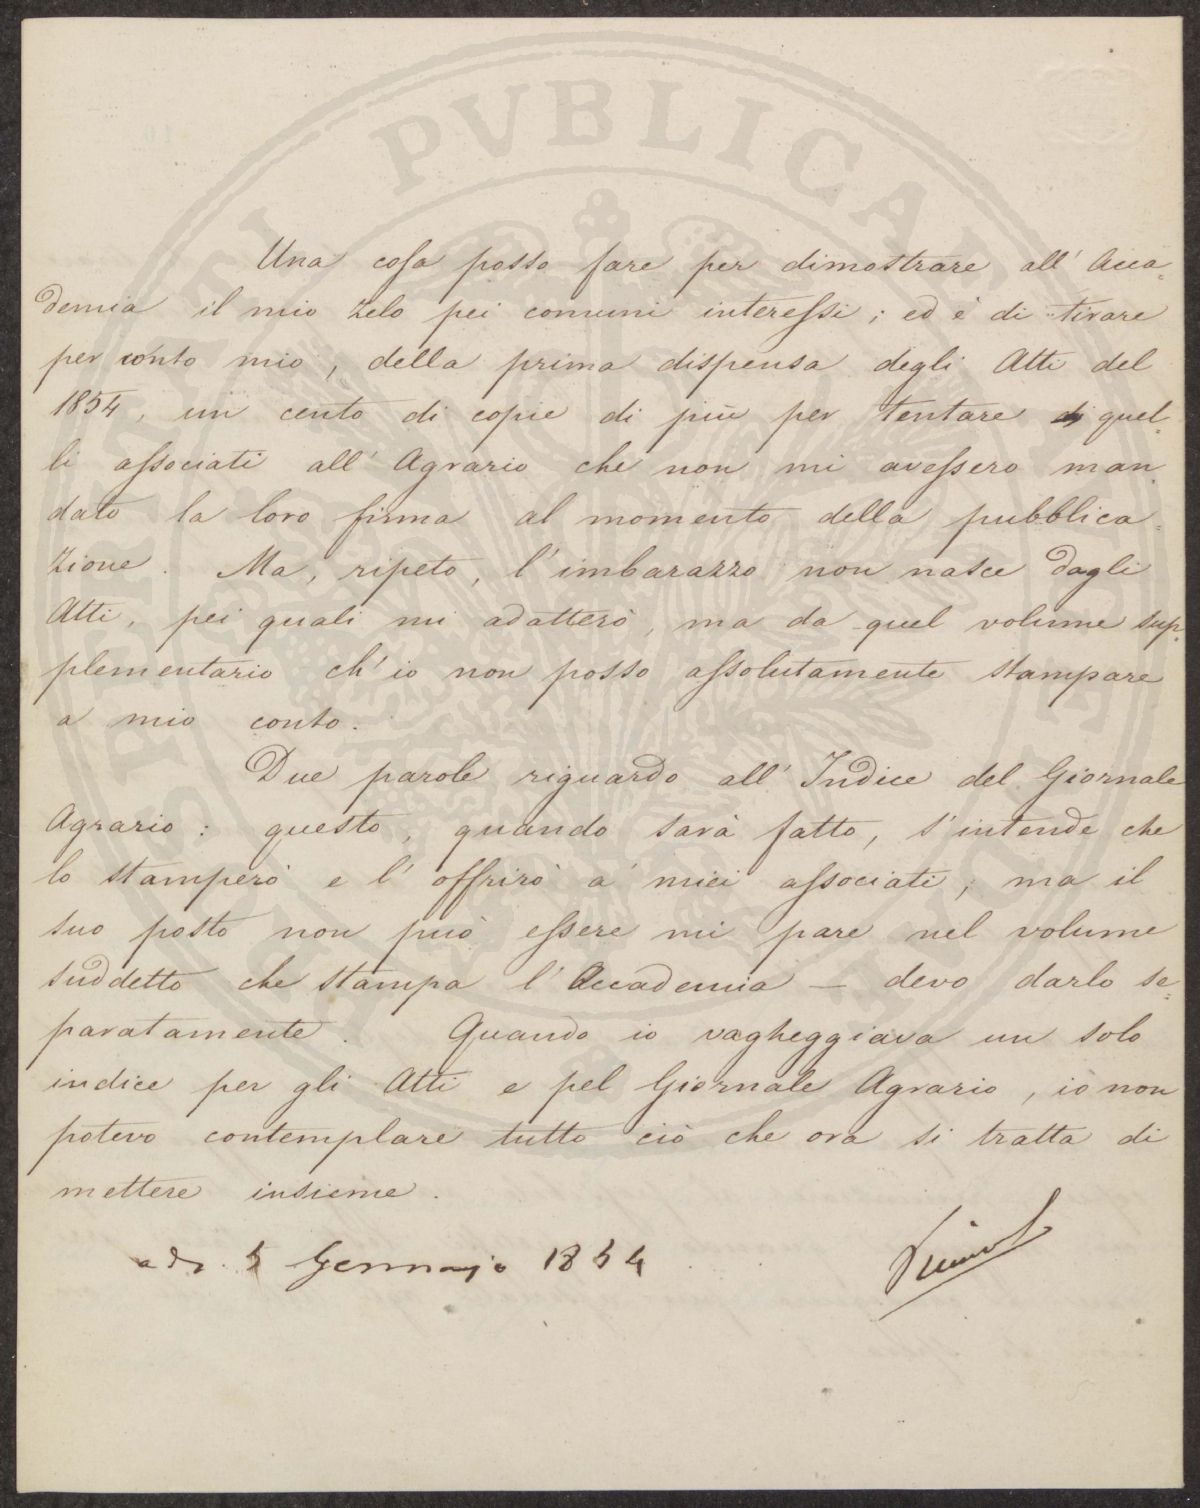 Una cosa posso fare per dimostrare all' Acca=
demia il mio zelo pei comuni interessi; ed è di tirare
per conto mio, della prima dispensa degli Atti del
1854, un cento di copie di più per tentare quel=
li associati all' Agrario che non mi avessero man
dato la loro firma al momento della pubblica=
zione. Ma, ripeto, l'imbarazzo non nasce dagli
Atti, pei quali mi adatterò, ma da quel volume sup=
plementario ch' io non posso assolutamente stampare
a mio conto.
Due parole riguardo all' Indice del Giornale
Agrario: questo, quando sarà fatto, s'intende che
lo stamperò e l' offrirò a' miei associati; ma il
suo posto non può essere mi pare nel volume
suddetto che stampa l' Accademia — devo darlo se=
paratamente. Quando io vagheggiava un solo
indice per gli Atti e pel Giornale Agrario, io non
potevo contemplare tutto ciò che ora si tratta di
mettere insieme.
adì 5 Gennajo 1854
PVBLICAE